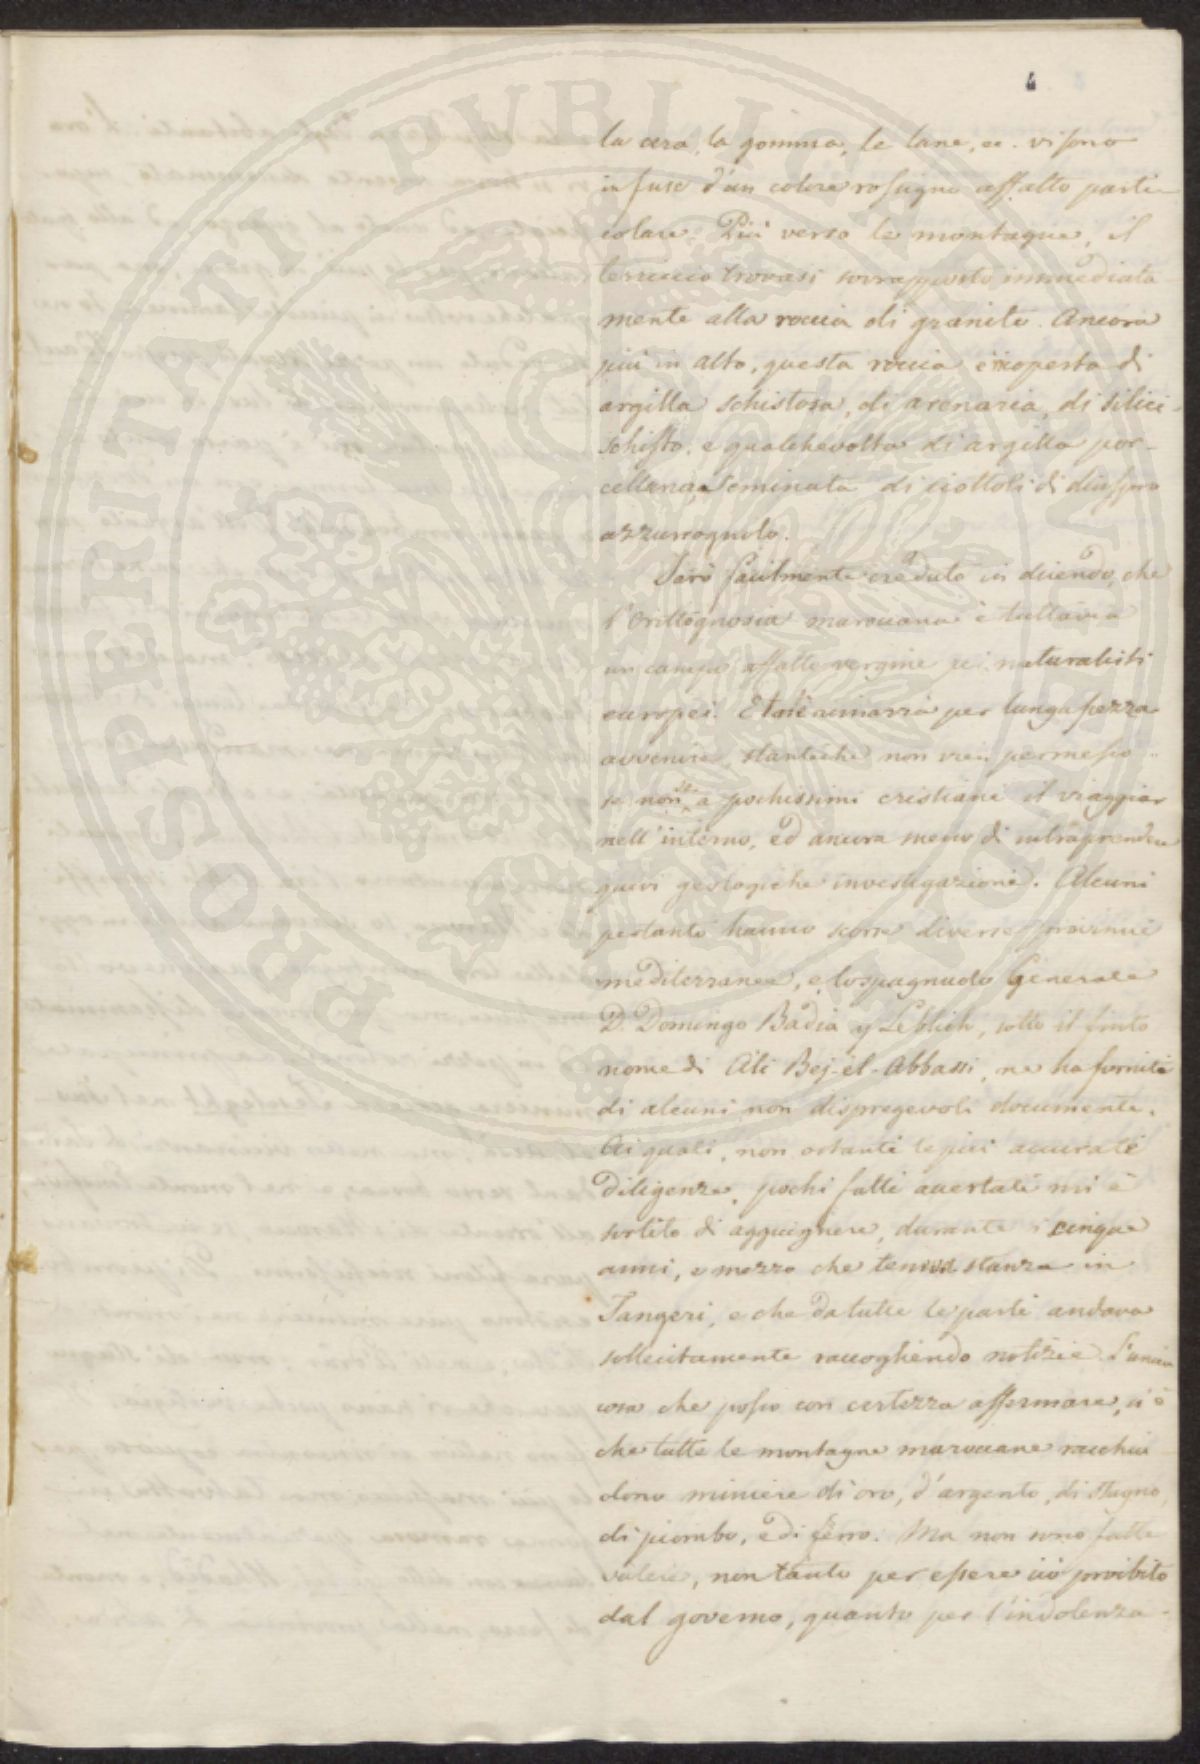 4
la cera, la gomma, le lane, ec. vi sono
infuse d'un colore rossigno affatto parti-
colare. Più verso le montagne, il
terriccio trovasi sovrapposto immediata
mente alla roccia di granito. Ancora
più in alto, questa roccia è ricoperta di
argilla schistosa, di arenaria, di silici-
schisto, e qualchevolta di argilla por-
cellana, seminata di ciottoli di diaspro
azzurrognolo.
Sarò facilmente creduto in dicendo, che
l'Orittognosia maroccana è tuttavia
un campo affatto vergine pei naturalisti
europei. E tale rimarrà per lunga pezza
avvenire, stanteche non vien permesso
se non a pochissimi cristiani il viaggiar
nell'interno, ed ancora meno di intraprendere
quivi geologiche investigazioni. Alcuni
pertanto hanno scorse diverse provincie
mediterranee, e lo spagnuolo Generale
D. Domingo Badia y Leblich, sotto il finto
nome di Ali Bej-el-Abbassi, ne ha forniti
di alcuni non dispregevoli documenti.
Ai quali, non ostanti le più accurate
diligenze, pochi fatti accertati mi è
sortito di aggiugnere, durante i cinque
anni, e mezzo che teneva stanza in
Tangeri, e che da tutte le parti andava
sollecitamente raccogliendo notizie. L'unica
cosa che posso con certezza affermare, si è
che tutte le montagne maroccane racchiu
dono miniere di oro, d'argento, di stagno,
di piombo, e di ferro. Ma non sono fatte
valere, non tanto per essere ciò proibito
dal governo, quanto per l'indolenza
PROSPERITATI PUBLICAE